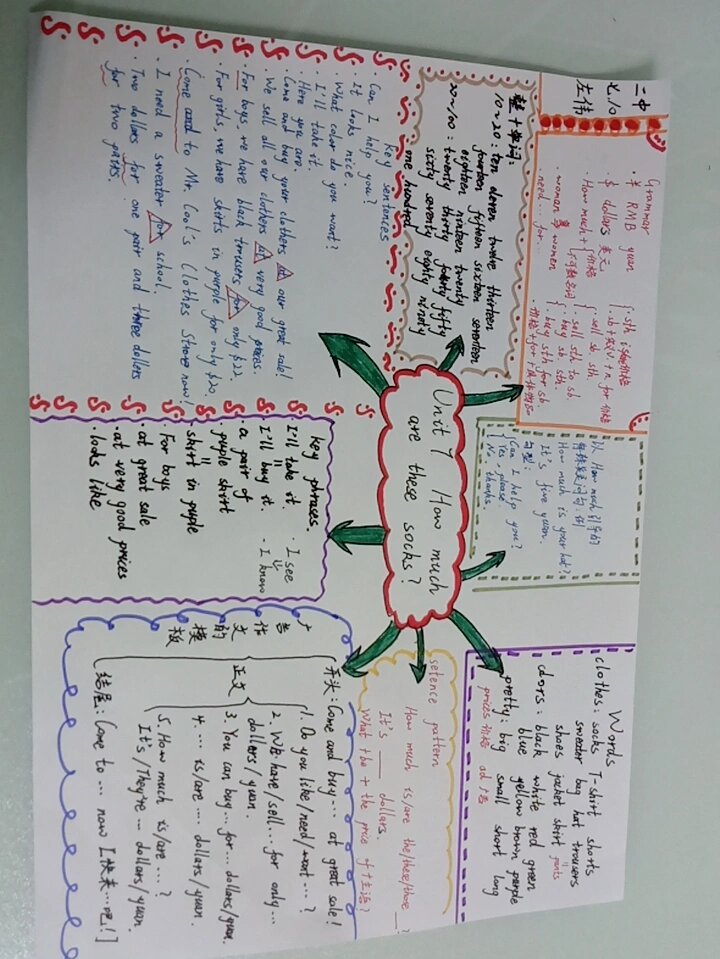 二中
七.10
左伟
Grammar
· ¥ RMB yuan
· $ dollars 美元
· How much + { 价格
不可数名词
woman 變 women
· need ... for ...
{ · sth is 价格
· sb + 卖/v. + n for 价格
{ · sell sth to sb
· sell sb sth
{ · buy sb sth
· buy sth for sb
整十单词:
10~20: ten eleven twelve thirteen
fourteen fifteen sixteen seventeen
eighteen nineteen twenty
20~100: twenty thirty forty fifty
sixty seventy eighty ninety
one hundred
key sentences
· Can I help you?
· It looks nice.
· What color do you want?
· I'll take it.
· Here you are.
· Come and buy your clothers at our great sale!
· We sell all our clothers at very good prices.
· For boys, we have black trousers for only $22.
· For girls, we have skirts in purple for only $20.
· Come and to Mr. Cool's Clothes Strore now!
· I need a sweater for school.
· Two dollars for one pair and three dollers
for two pairs.
Unit 7 How much
are these socks?
以 How much 引导的
特殊疑问句: 例
How much is your hat?
It's five yuan.
句型:
Can I help you?
{ Yes, please.
No, thanks.
key phrases.
I'll take it.
=
I'll buy it.
· I see
· I know
· a pair of
· puple skirt
=
skirt in puple
· For boys
· at great sale
· at very good prices
· looks like
Words
clothes: socks T-shirt shorts
sweater bag hat trousers
shoes jacket skirt pants
colors: black white red green
blue yellow brown purple
pretty: big small short long
prices 价格 ad 广告
setence pattern
How much is/are the/these/those __?
It's ___ dollars.
What + be + the price of + 主语?
广告作文的模板
开头: Come and buy ... at great sale!
正文
1. Do you like/need/want ... ?
2. We have/sell ... for only ...
dollers/yuan.
3. You can buy ... for ... dollars/yuan.
4. ... is/are ... dollars/yuan.
5. How much is/are ... ?
It's/They're ... dollars/yuan
结尾: Come to ... now [快来...吧!]